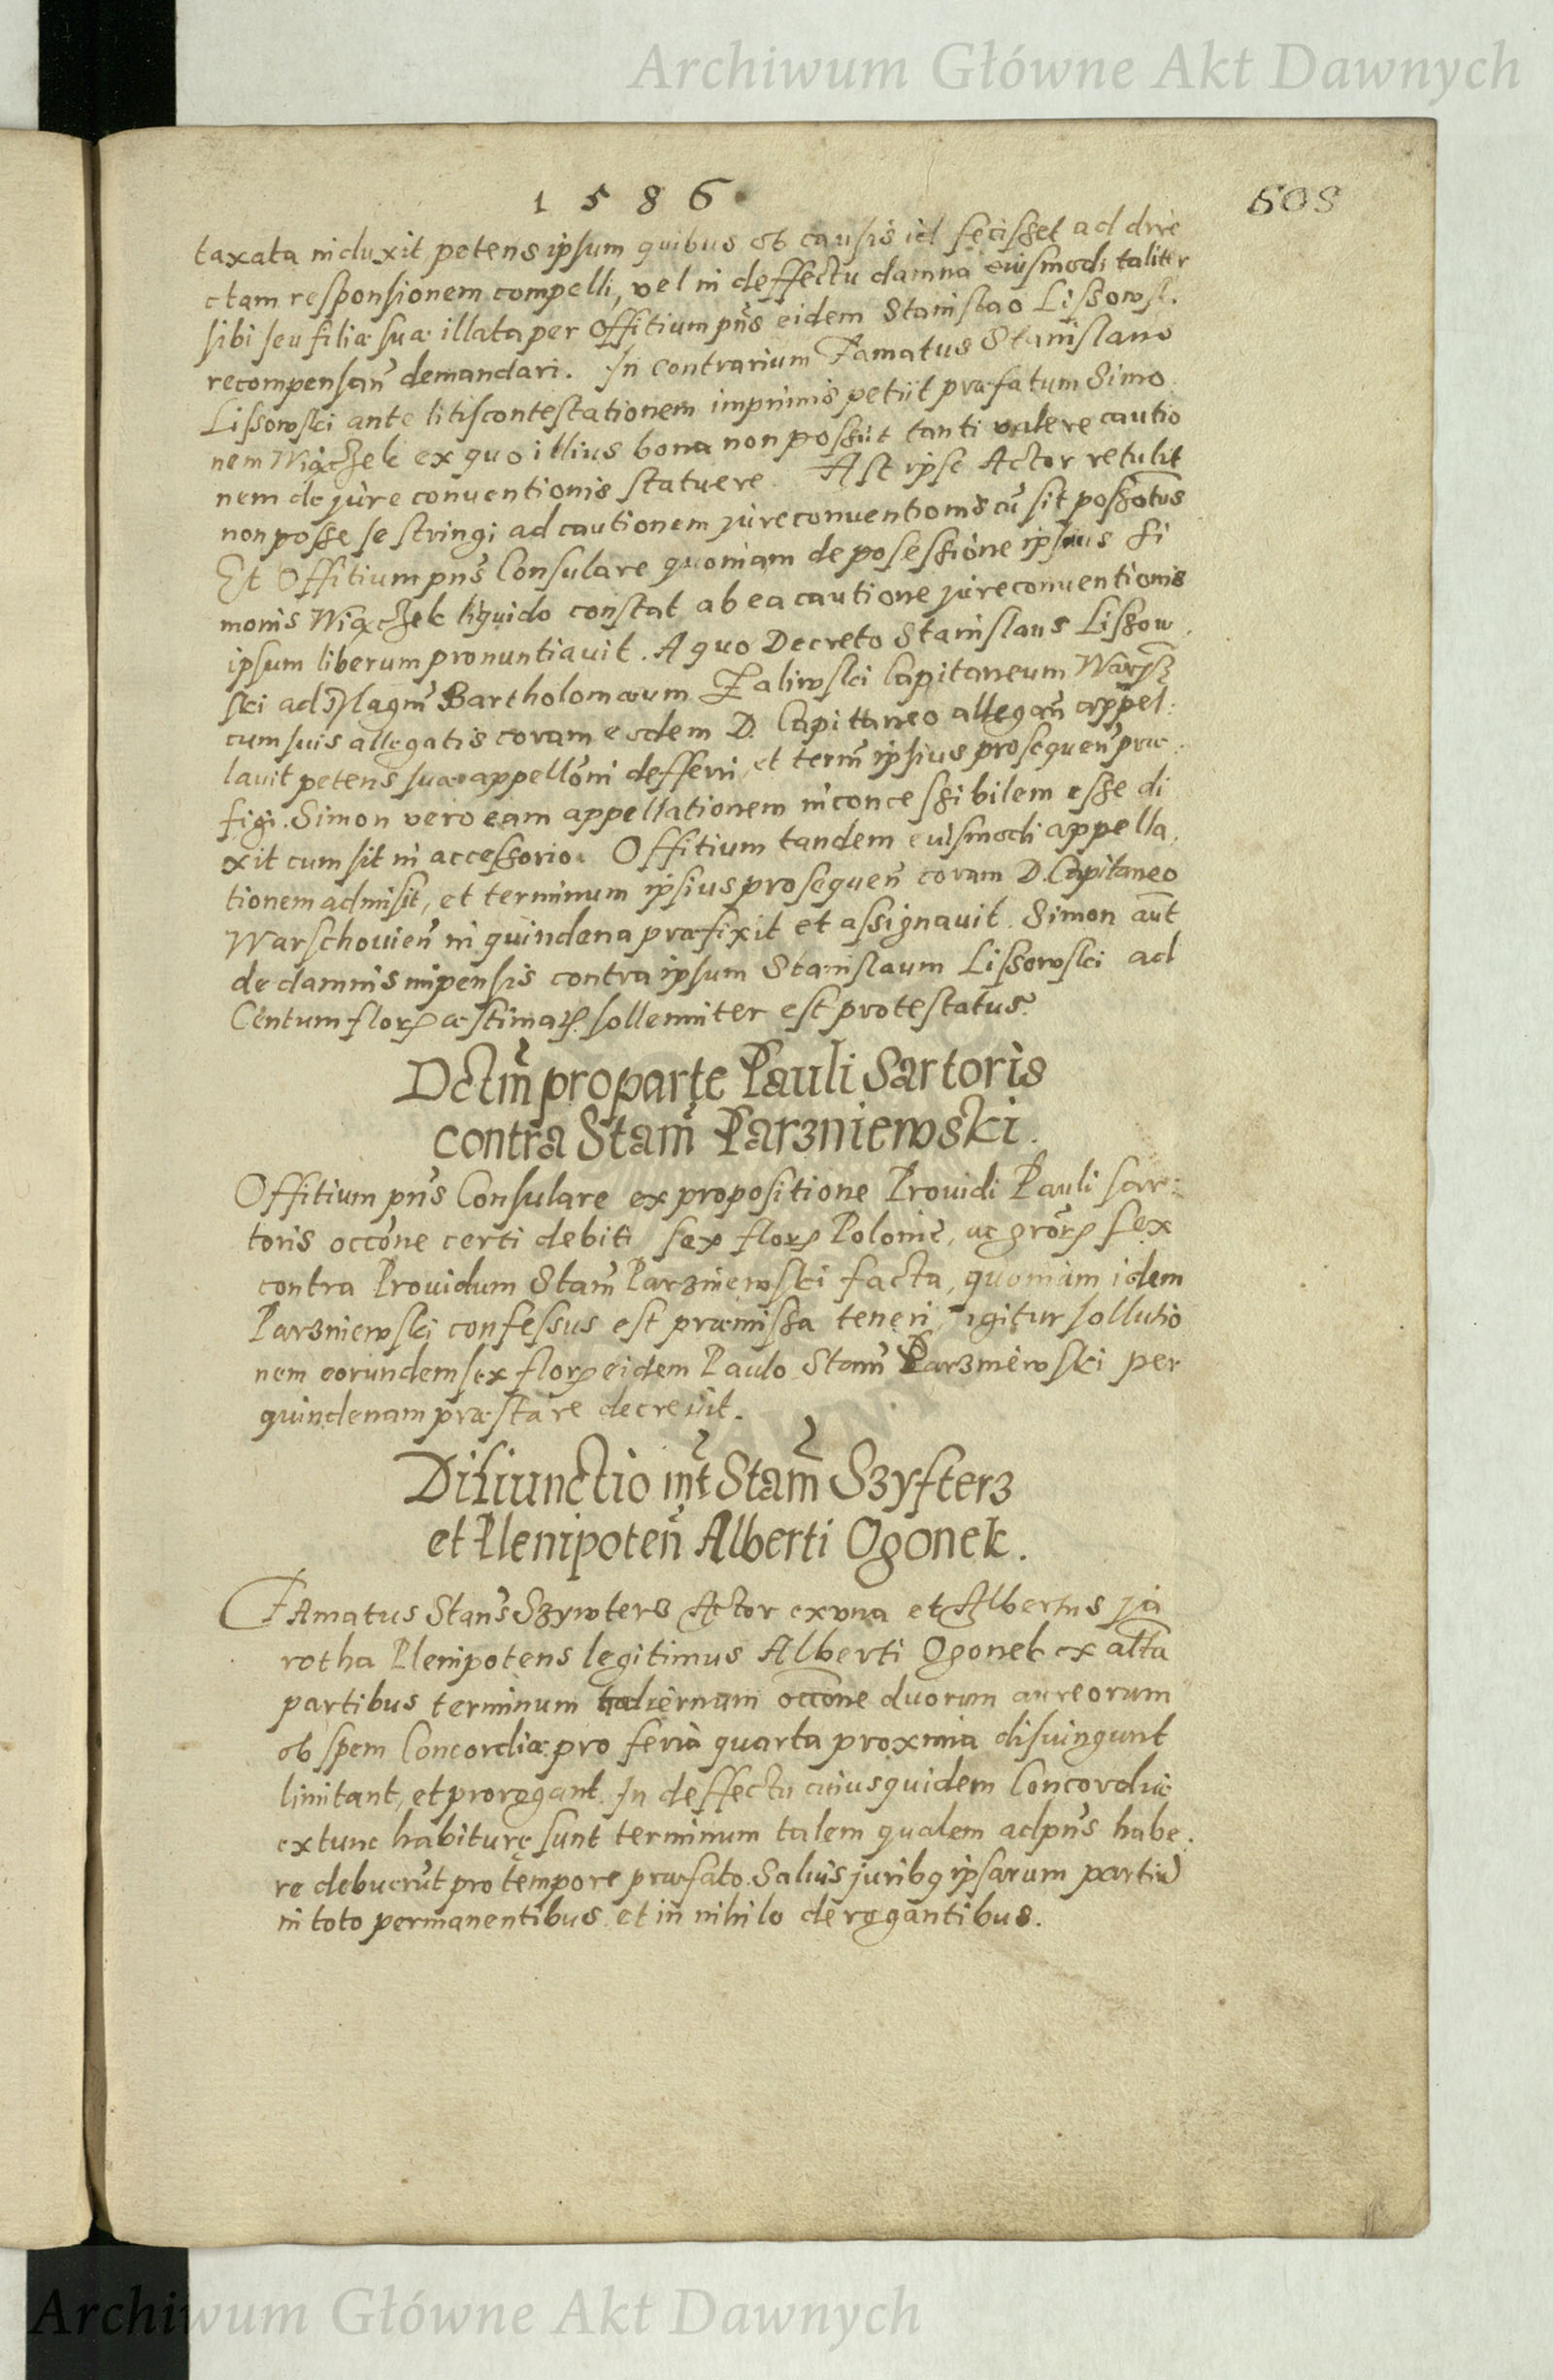 Archiwum Główne Akt Dawnych
1586
508
taxata induxit petens ipsum quibus ob causis id fecisset ad dire
ctam responsionem compelli, vel in deffectu damna eiusmodi taliter
sibi seu filiæ suæ illata per Offitium pn̄s eidem Stanislao Lissowsk.
recompensan̄ demandari. In contrarium Famatus Stanislaus
Lissowski ante litiscontestationem imprimis petiit præfatum Simo
nem Wiączek ex quo illius bona non possūt tanti valere cautio
nem de jure conventionis statuere. Ast ipse Actor retulit
non posse se stringi ad cautionem jure conventionis cū sit possōtus
Et Offitium pn̄s Consulare quoniam de posessione ipsius Si
monis Wiączek liquido constat ab ea cautione jure conventionis
ipsum liberum pronuntiavit. A quo Decreto Stanislaus Lissow
ski ad Magm̄ Bartholomæum Zaliwski Capitaneum
cum suis allegatis coram eodem D. Capittaneo allegan̄ appel:
lavit petens suæ appellōni defferri, et term̄ ipsius prosequen̄ præ:
figi. Simon vero eam appellationem inconcessibilem esse di
xit cum sit in accessorio. Offitium tandem eiusmodi appella
tionem admisit, et terminum ipsius prosequen̄ coram D. Capitaneo
Warschovien̄ in quindena præfixit et assignavit. Simon aūt
de damnis inpensis contra ipsum Stanislaum Lissowski ad
Centum flor æstimat sollenniter est protestatus.
Dctm̄ pro parte Pauli Sartoris
contra Stam̄ Parzniewski.
Offitium pn̄s Consulare ex propositione Providi Pauli Sar:
toris occōne certi debiti sex flor Polonic, ac grōr sex
contra Providum Stam̄ Parzniewski facta, quoniam idem
Parzniewski confessus est præmissa teneri, igitur sollutio
nem eorundem sex flor eidem Paulo Stam̄ Parzniewski per
quindenam præstare decrevit.
Disiunctio int̄ Stam̄ Szyfterz
et Plenipoten̄ Alberti Ogonek.
Famatus Stan̄s Szywterz Actor ex una et Albertus Ja
rotha Plenipotens legitimus Alberti Ogonek ex alt̄a
partibus terminum hodiernum occōne duorum aureorum
ob spem Concordiæ pro feria quarta proxima disiungunt
limitant, et prorogant. In deffectu cuiusquidem Concordiæ
extunc habituræ sunt terminum talem qualem ad pn̄s habe.
re debuerūt pro tempore præfato. Salvis juribq ipsarum partiū
in toto permanentibus et in nihilo derogantibus.
Archiwum Główne Akt Dawnych